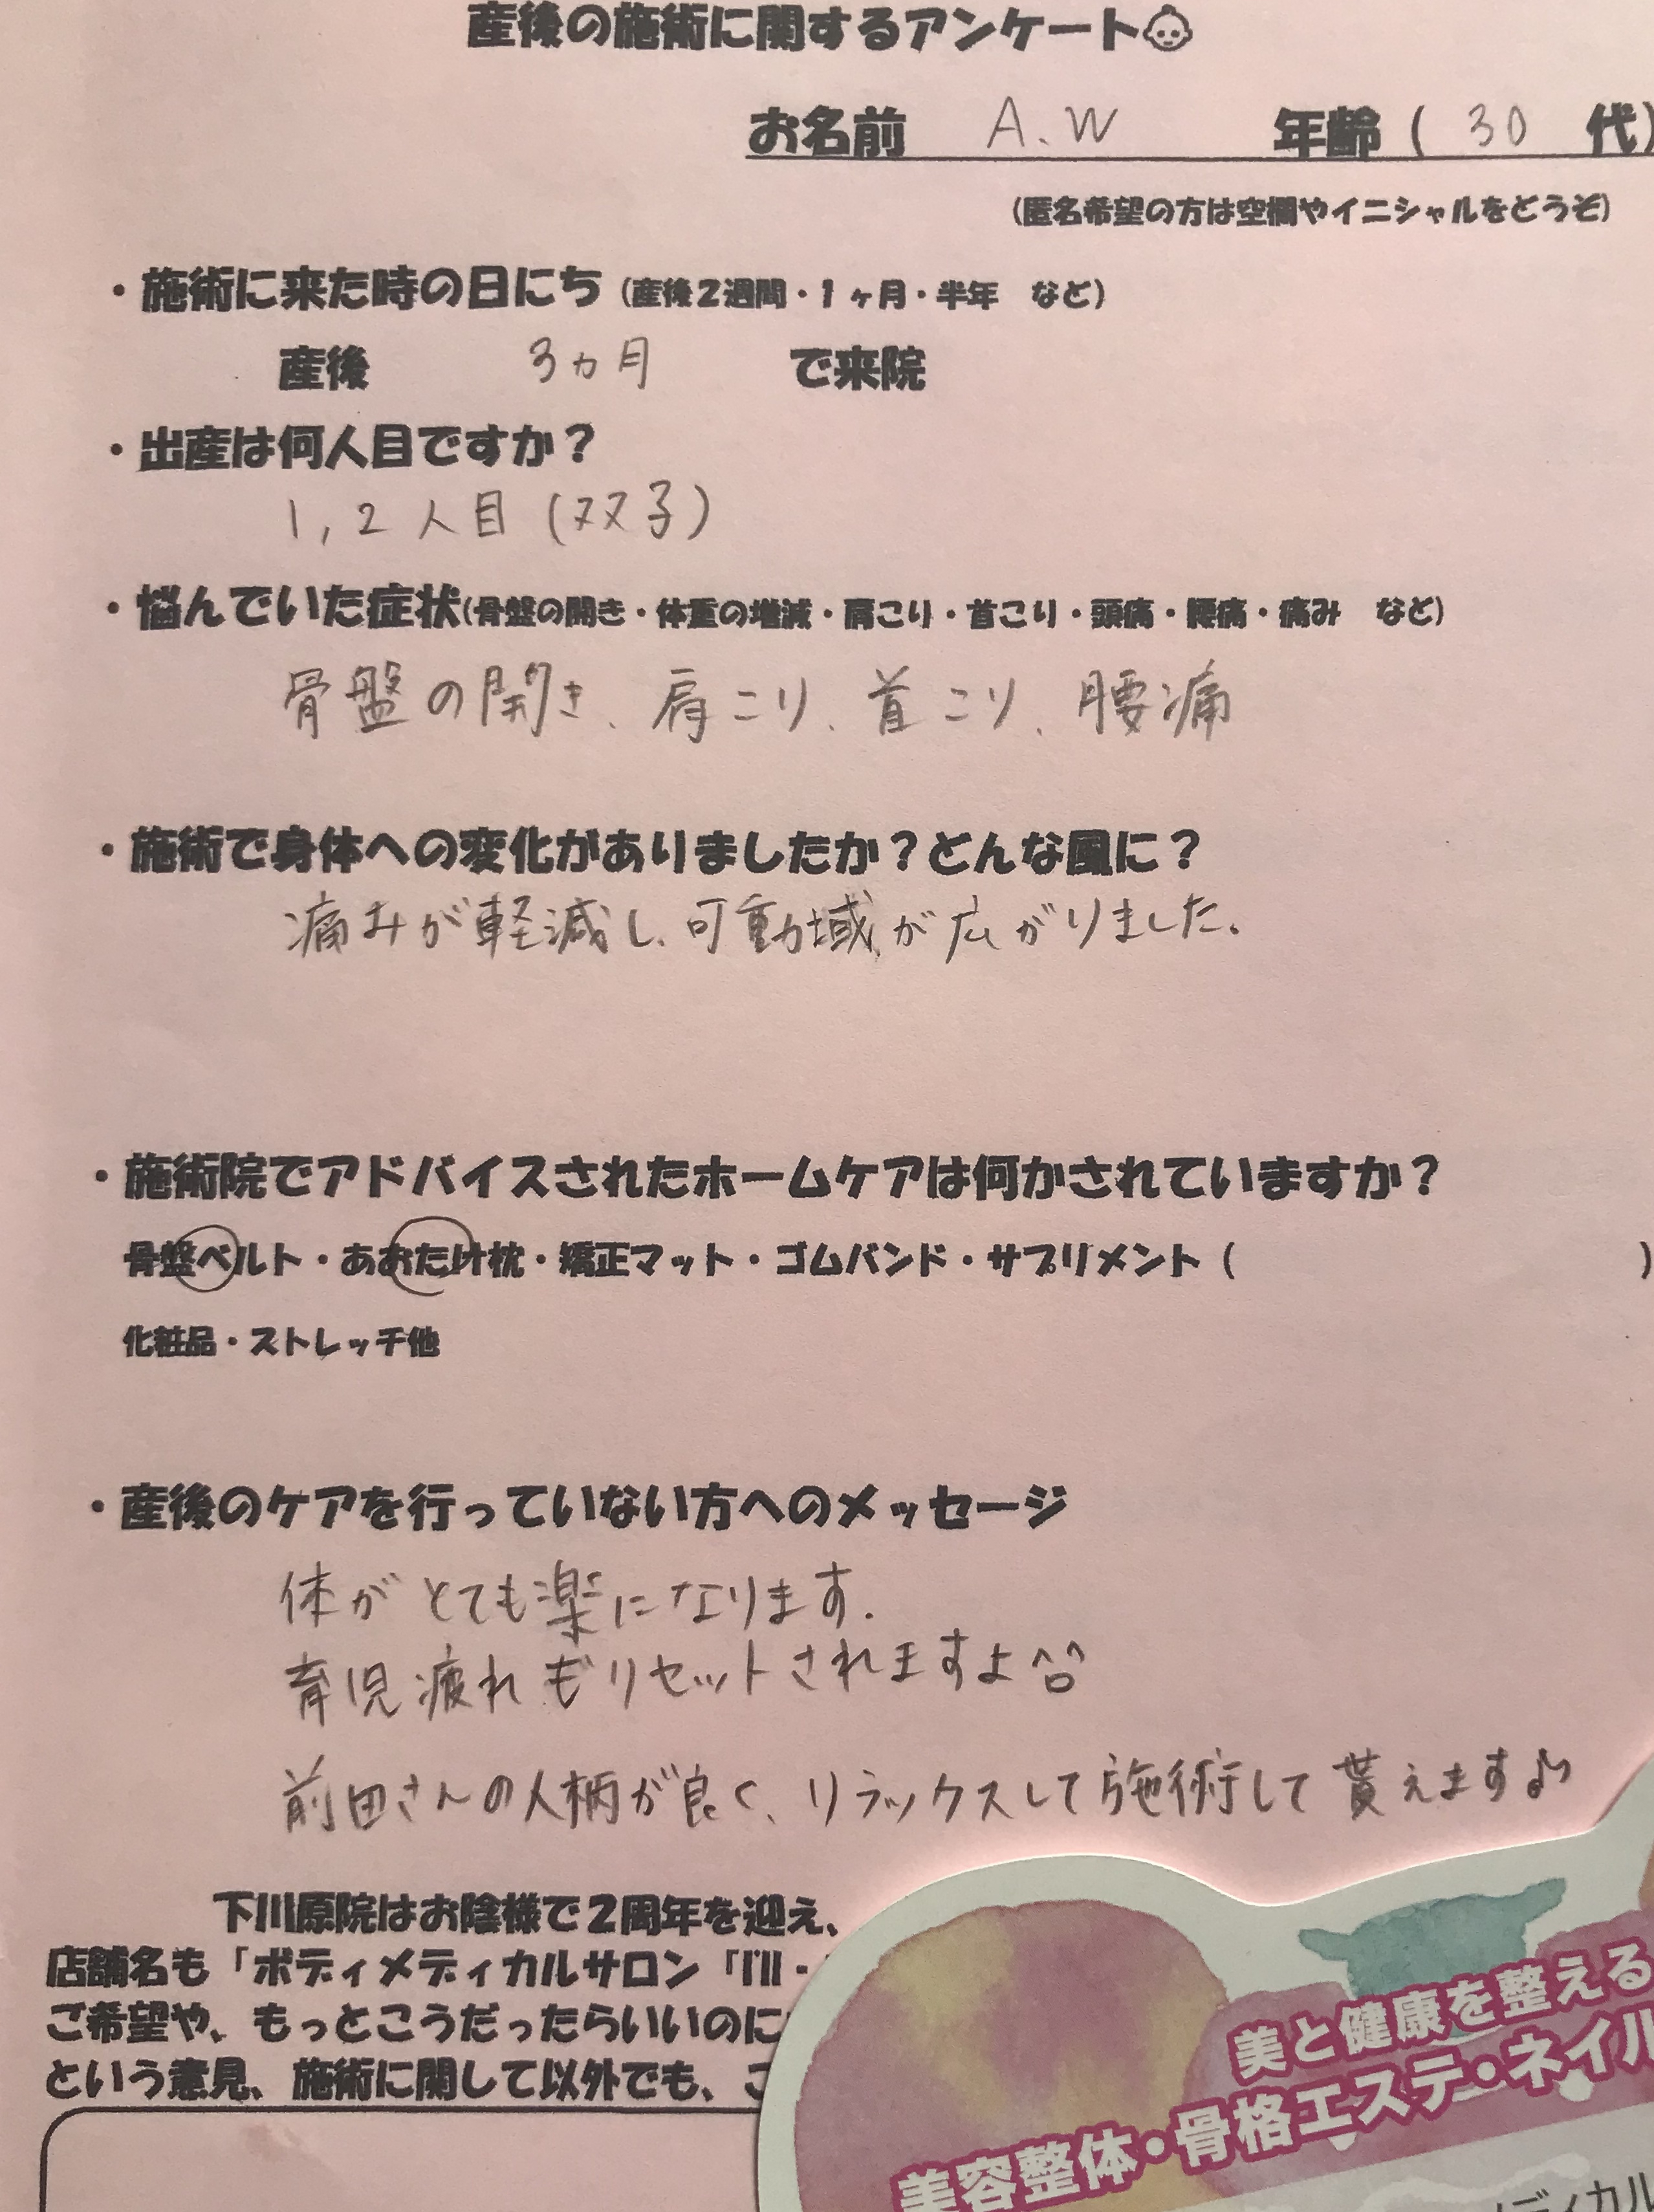 産後の施術に関するアンケート
お名前 A.W 年齢( 30 代)
(匿名希望の方は空欄やイニシャルをどうぞ)
・施術に来た時の日にち(産後2週間・1ヶ月・半年 など)
産後 3ヵ月 で来院
・出産は何人目ですか?
1,2人目(双子)
・悩んでいた症状(骨盤の開き・体重の増減・肩こり・首こり・頭痛・腰痛・痛み など)
骨盤の開き、肩こり、首こり、腰痛
・施術で身体への変化がありましたか?どんな風に?
痛みが軽減し、可動域が広がりました。
・施術院でアドバイスされたホームケアは何かされていますか?
骨盤ベルト・あおたけ枕・矯正マット・ゴムバンド・サプリメント( )
化粧品・ストレッチ他
・産後のケアを行っていない方へのメッセージ
体がとても楽になります.
育児疲れもリセットされますよ^o^
前田さんの人柄が良く、リラックスして施術して貰えます♪
下川原院はお陰様で2周年を迎え、
店舗名も「ボディメディカルサロン「I'll・
ご希望や、もっとこうだったらいいのに
という意見、施術に関して以外でも、ご
美と健康を整える
美容整体・骨格エステ・ネイル
ディカル